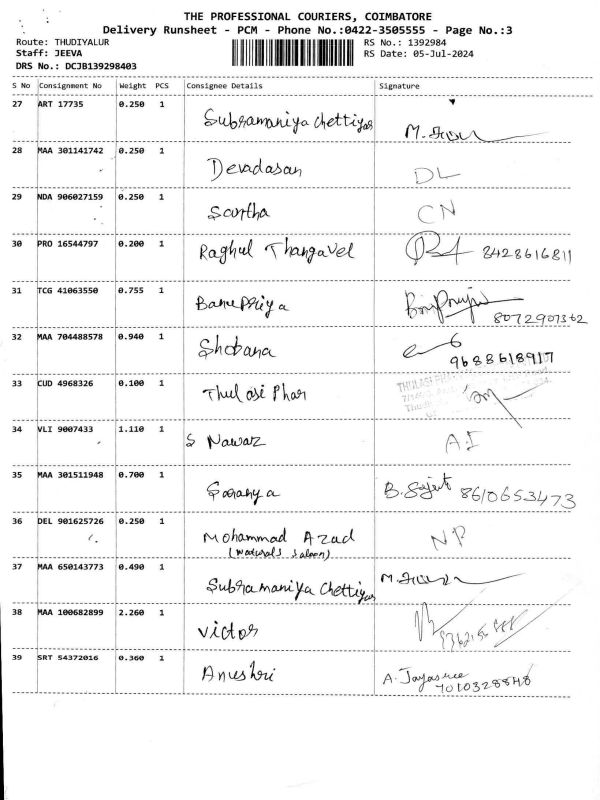 THE PROFESSIONAL COURIERS, COIMBATORE
Delivery Runsheet - PCM - Phone No.:0422-3505555 - Page No.:3
Route: THUDIYALUR
RS No.: 1392984
Staff: JEEVA
RS Date: 05-Jul-2024
DRS No.: DCJB139298403
S No Consignment No Weight PCS Consignee Details Signature
27 ART 17735 0.250 1 Subramaniya Chettiyar M.
28 MAA 301141742 0.250 1 Devadasan DL
29 NDA 906027159 0.250 1 CN
30 PRO 16544797 0.200 1 Raghul Thangavel 8428616811
31 TCG 41063550 0.755 1 Banupriya
8072907362
32 MAA 704488578 0.940 1 Shobana
9688618917
33 CUD 4968326 0.100 1 Thulasi Phar
THULASI
34 VLI 9007433 1.110 1 S Nawaz A.I
35 MAA 301511948 0.700 1 Saranya B. 8610653473
36 DEL 901625726 0.250 1 Mohammad Azad NP
(Naturals Saloon)
37 MAA 650143773 0.490 1 Subramaniya Chettiyar M.
38 MAA 100682899 2.260 1 Victor
39 SRT 54372016 0.360 1 Anushri A. Jayasree
7010328848